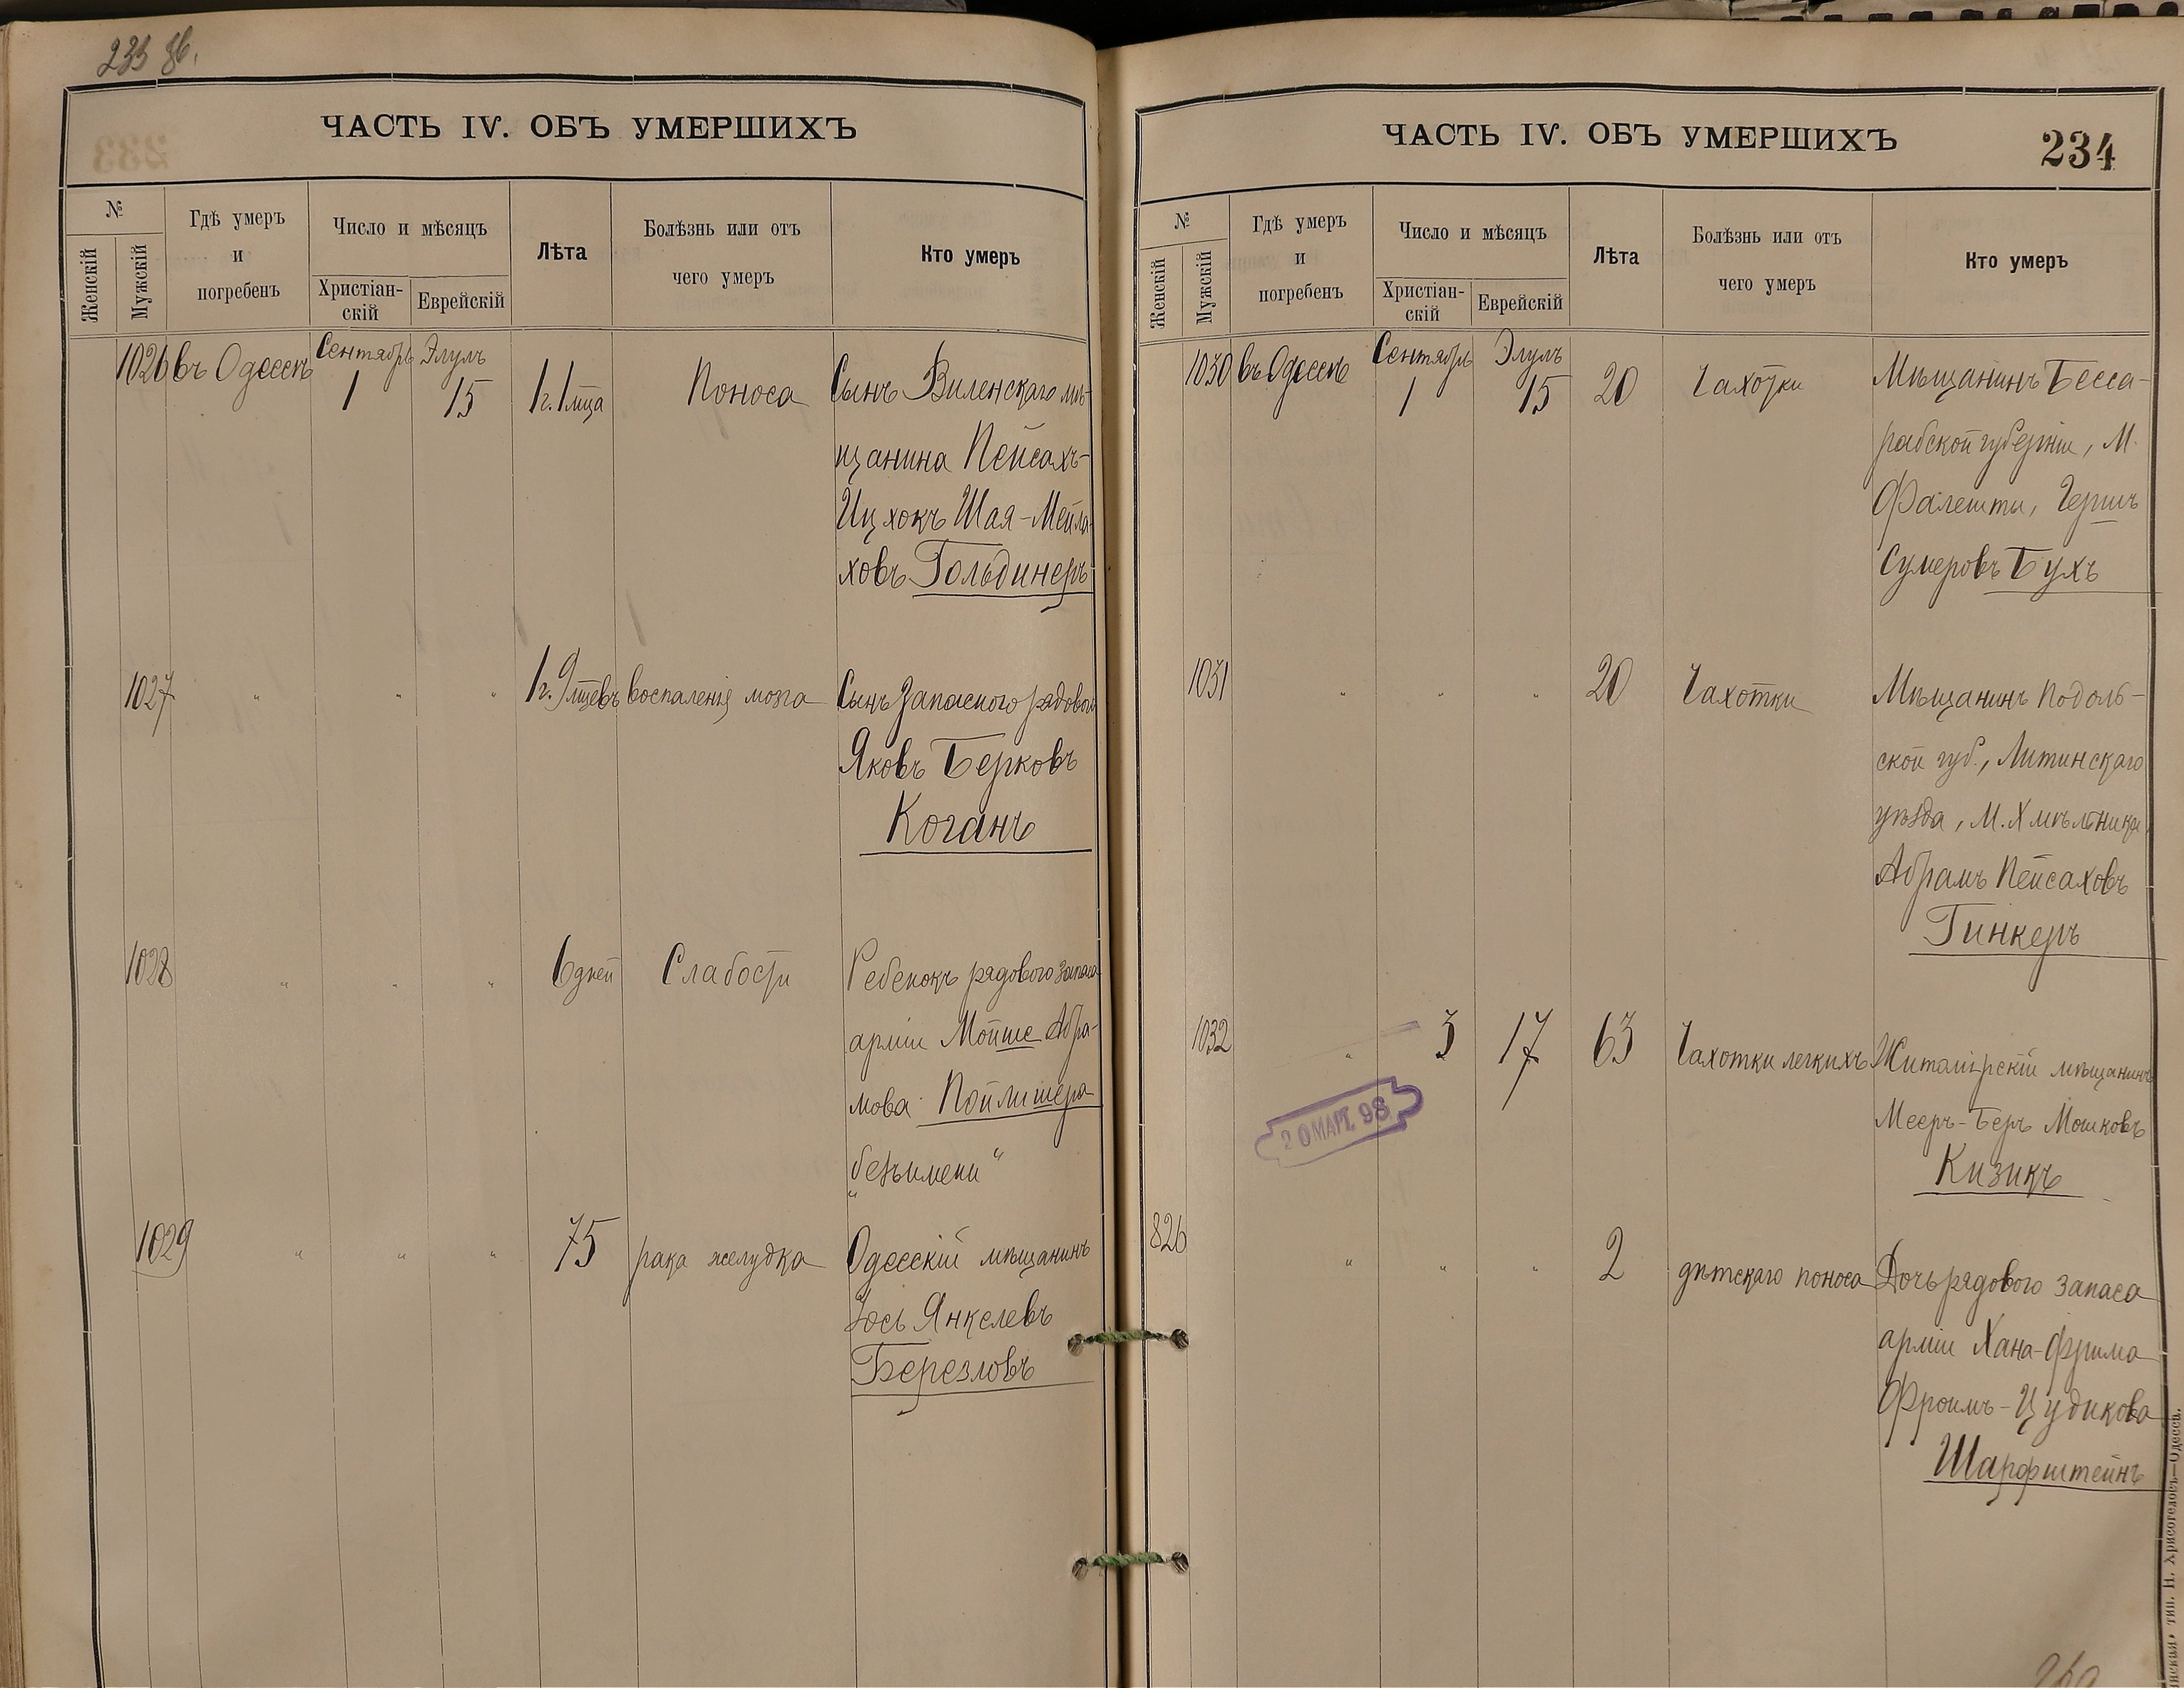 233 об.
ЧАСТЬ IV. ОБЪ УМЕРШИХЪ
№
Женскій
Мужскій
Гдѣ умеръ
и
погребенъ
Число и мѣсяцъ
Христіан-
скій
Еврейскій
Лѣта
Болѣзнь или отъ
чего умеръ
Кто умеръ
1026 въ Одессѣ Сентябрь 1 Элулъ 15 1 г. 1 мца Поноса Сынъ Виленскаго мѣ-
щанина Пейсахъ-
Ицхокъ Шая-Мейла-
ховъ Гольдинеръ
1027 " " " 1 г. 9 мцевъ воспаленія мозга Сынъ Запасного рядового
Яковъ Берковъ
Коганъ
1028 " " " 6 дней Слабости Ребенокъ рядового запаса
арміи Мойше Абра-
мова Пойлишера
"безъимени"
1029 " " " 75 рака желудка Одесскій мѣщанинъ
Іось Янкелевъ
Березловъ
ЧАСТЬ IV. ОБЪ УМЕРШИХЪ
234
№
Женскій
Мужскій
Гдѣ умеръ
и
погребенъ
Число и мѣсяцъ
Христіан-
скій
Еврейскій
Лѣта
Болѣзнь или отъ
чего умеръ
Кто умеръ
1030 въ Одессѣ Сентябрь 1 Элулъ 15 20 Чахотки Мѣщанинъ Бесса-
рабской губерніи, М.
Фалешти, Гершъ
Сумеровъ Бухъ
1031 " " " 20 Чахотки Мѣщанинъ Подоль-
ской губ., Литинскаго
уѣзда, М. Хмѣльника,
Абрамъ Пейсаховъ
Гинкеръ
1032 " 3 17 63 Чахотки легкихъ Житомірскій мѣщанинъ
Мееръ-Беръ Мошковъ
Кизикъ
20 МАРТ. 98
826 " " " 2 дѣтскаго поноса Дочь рядового запаса
арміи Хана-Фрима
Фроимъ-Цудикова
Шарфштейнъ
тип. Н. Хрисогелосъ—Одесса.